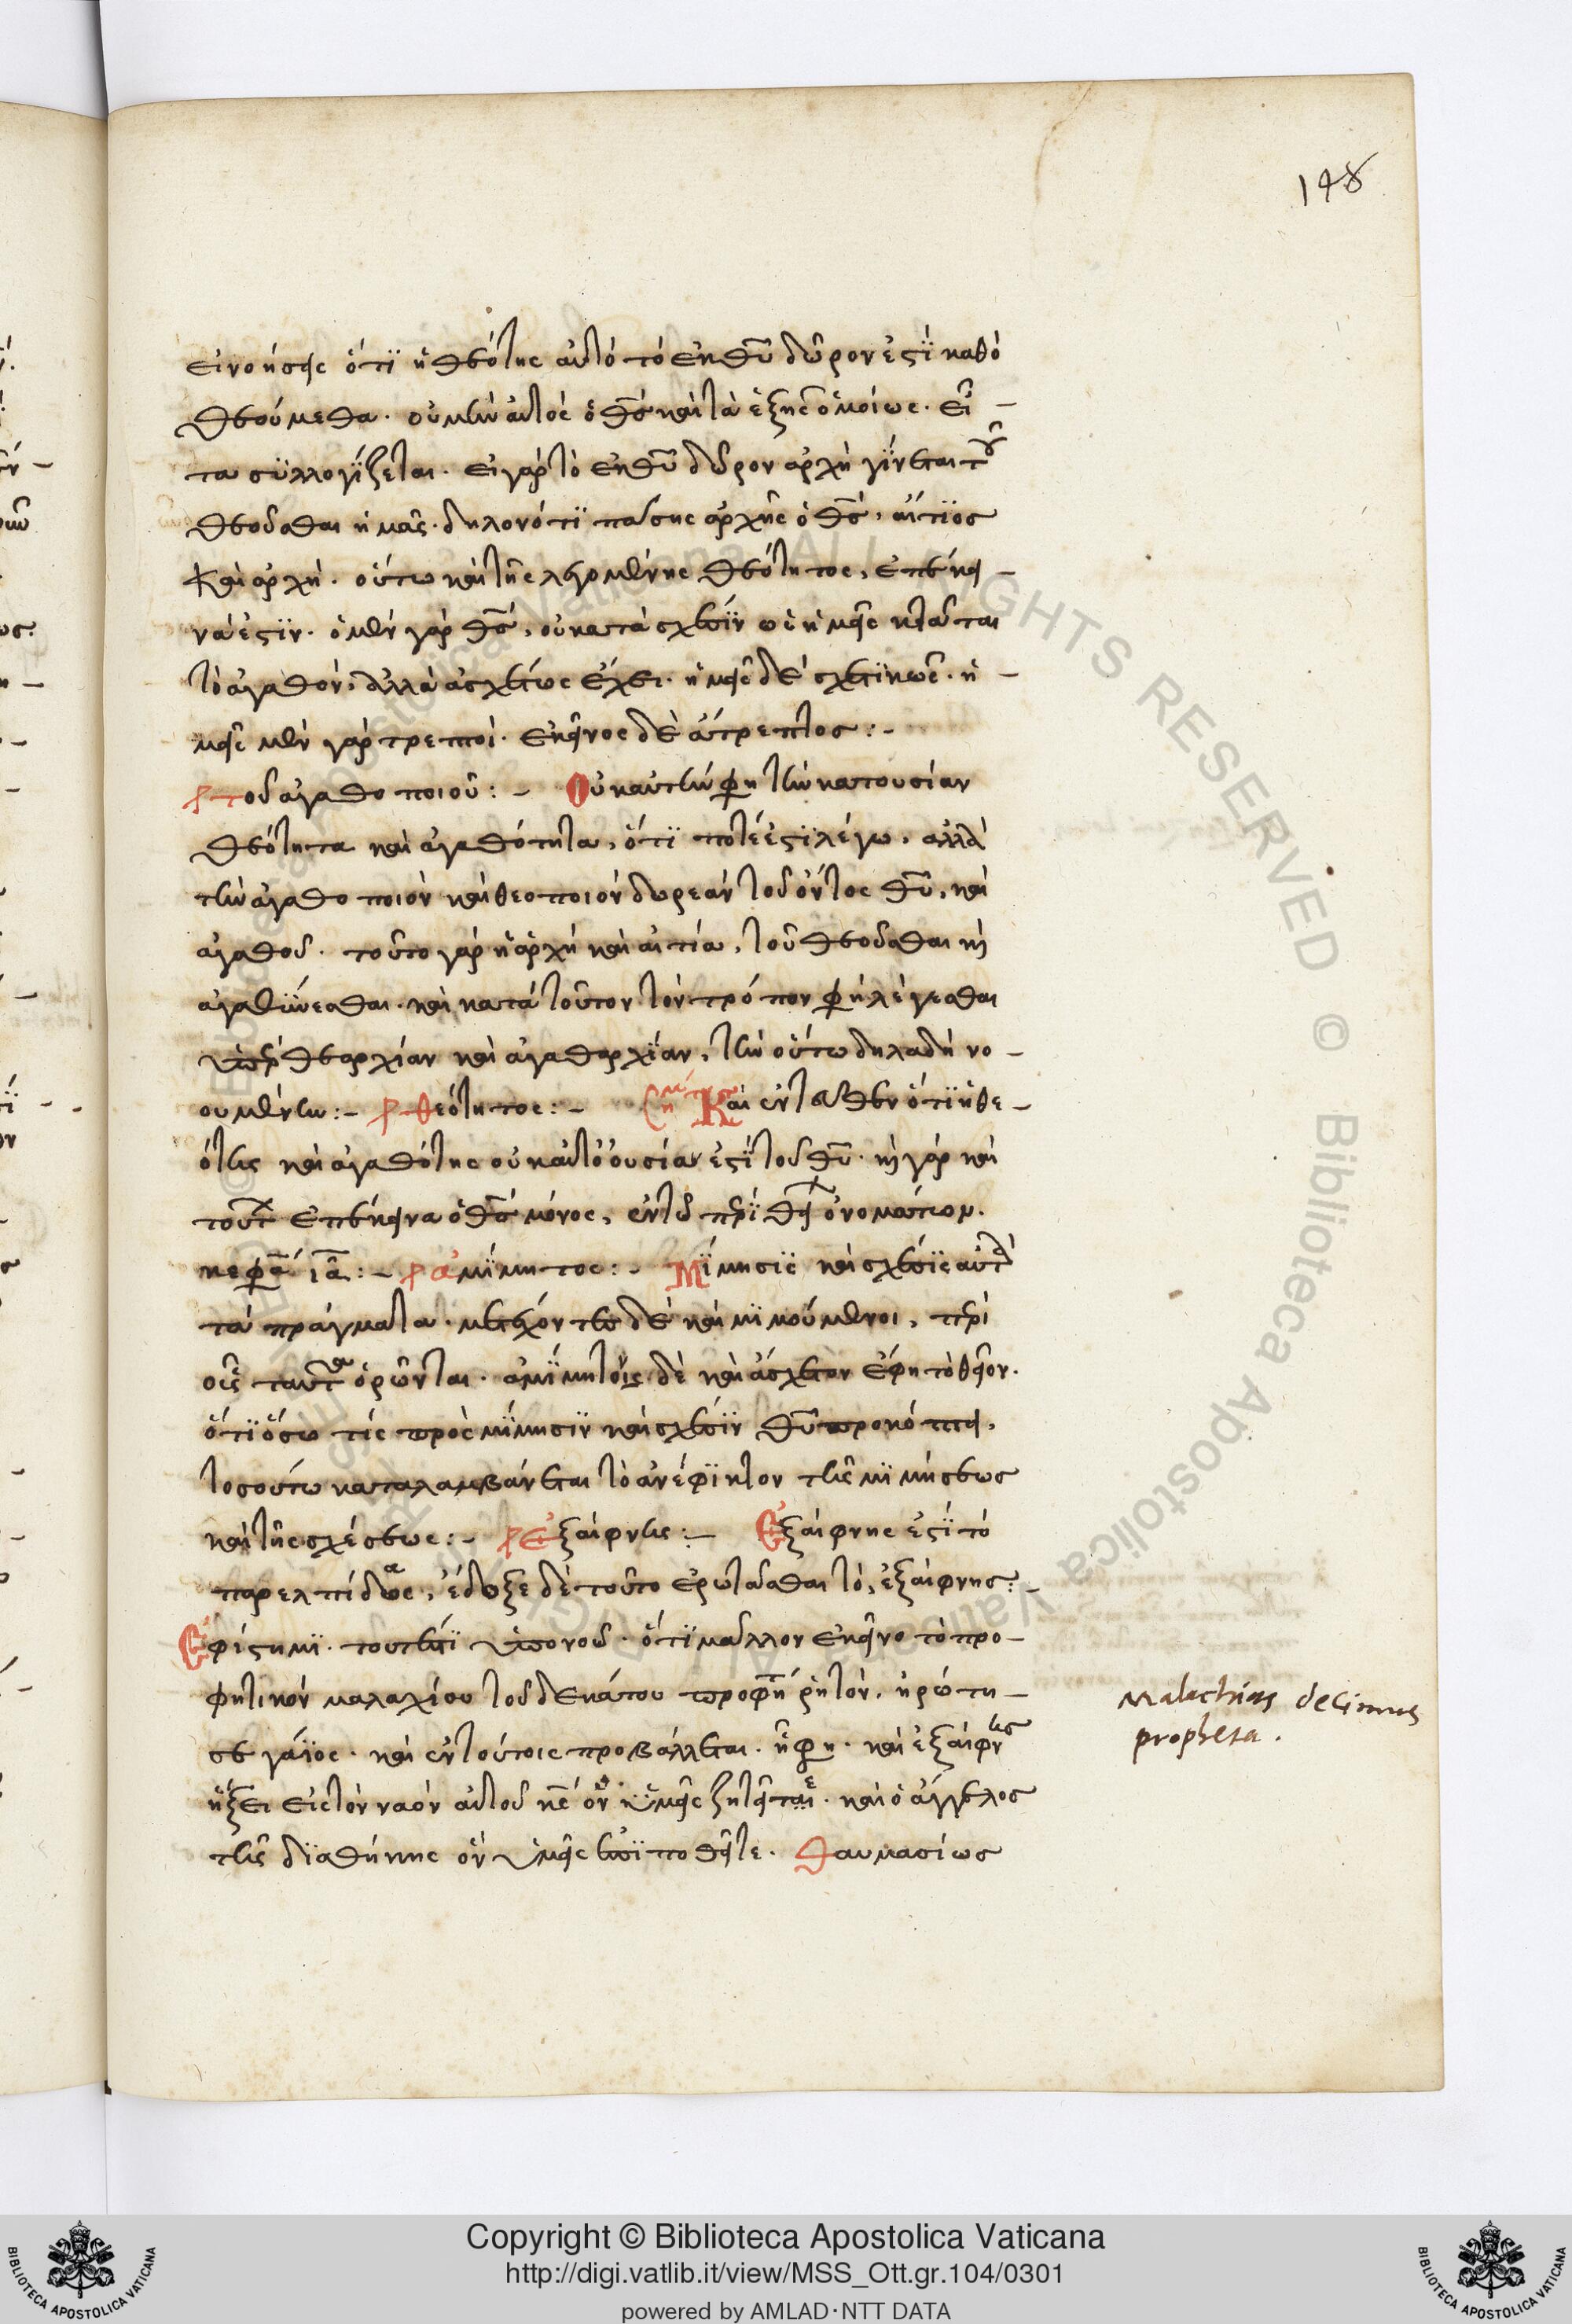 148
εἰνοήσῃς ὅτϊ ἡ θεότης αὐτό τό ἐκ θῦ δῶρον ἐστϊ καθό
θεούμεθα. οὐ μὴν αὐτός ὁ θς καὶ τὰ ἑξῆς ὁμοίως. εἶ -
τα συλλογίζεται. εἰ γάρ τὸ ἐκ θῦ δῶρον ἀρχὴ γίνεται τοῦ
θεοῦσθαι ἡμᾶς. δηλονότϊ πάσης ἀρχῆς ὁ θς, αἴτϊος
καὶ ἀρχή. οὕτω καὶ τῆς λεγομένης θεότητος, ἐπέκει -
νά ἐστϊν. ὁ μὲν γάρ θς, οὐ κατά σχέσϊν ὡς ἡμεῖς κτᾶται
τὸ ἀγαθόν, ἀλλὰ ἀσχέτως ἔχει. ἡμεῖς δέ σχετϊκῶς. ἡ -
μεῖς μὲν γάρ τρεπτοί. ἐκεῖνος δὲ ἄτρεπτος :-
τοῦ ἀγαθοποιοῦ :- Οὐκ αὐτήν φη τὴν κατουσίαν
θεότητα καὶ ἀγαθότητα, ὅτϊ ποτέ ἐστϊ λέγω, ἀλλὰ
τὴν ἀγαθοποιὸν καὶ θεοποιὸν δωρεὰν τοῦ ὄντος θῦ, καὶ
ἀγαθοῦ. τοῦτο γάρ ἡ ἀρχή καὶ αἰτία, τοῦ θεοῦσθαι καὶ
ἀγαθύνεσθαι. καὶ κατά τοῦτον τὸν τρόπον φὴ λέγεσθαι
ὑπὲρ θεαρχίαν καὶ ἀγαθαρχίαν, τὴν οὕτω δηλαδή νο -
ουμένην :- θεότητος :- ση Καὶ ἐνταῦθεν ὅτϊ ἡ θε -
ότης καὶ ἀγαθότης οὐκ αὐτὸ οὐσία ἐστϊ τοῦ θῦ. καὶ γάρ καὶ
τουτ ἐπέκεινα ὁ θς μόνος, ἐν τῶ περὶ θεί ὀνομάτων.
κεφα ια :- ἀμϊμητος :- Μϊμησϊς καὶ σχέσϊς αυτ
τὰ πράγματα. μετέχοντες δέ καὶ μϊμούμενοι, περὶ
οἷς ταῦτα ὁρῶνται. ἀμϊμητοις δὲ καὶ ἄσχετον ἔφη τὸ θεῖον.
ὅτϊ ὅσω τίς πρὸς μϊμησϊν καὶ σχέσϊν θῦ προκόπτει,
τοσούτω καταλαμβάνεται τὸ ἀνέφϊκτον τῆς μϊμήσεως
καὶ τῆς σχέσεως :- ἐξαίφνης :- Ἐξαίφνης ἐστϊ τό
παρελπίδας, ἔδοξε δὲ τοῦτο ἐρωτᾶσθαι τὸ, ἐξαίφνης :-
Ἐφίστημϊ. τουτέστϊ ὑπονοῶ. ὅτϊ μᾶλλον ἐκεῖνο τὸ προ -
φητικὸν μαλαχίου τοῦ δεκάτου προφη ῥητὸν, ἠρώτη -
σε γάϊος. καὶ ἐν τούτοις προβάλλεται. ἢ φη. καὶ ἐξαίφνης
ἥξει εἰς τὸν ναὸν αὐτοῦ κς ὃν ὑμεῖς ζητεῖτε. καὶ ὁ ἄγγελος
τῆς διαθήκης ὃν ὑμεῖς ἐπϊποθεῖτε. Θαυμασίως
Malachias decimus
propheta.
Copyright © Biblioteca Apostolica Vaticana
http://digi.vatlib.it/view/MSS_Ott.gr.104/0301
powered by AMLAD·NTT DATA
BIBLIOTECA APOSTOLICA VATICANA
BIBLIOTECA APOSTOLICA VATICANA